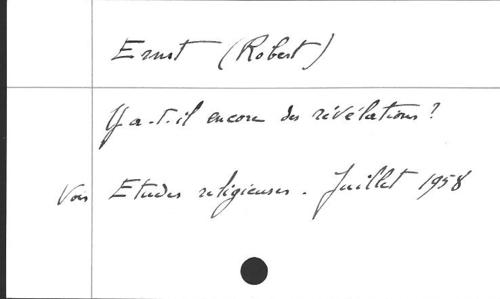 Ernst (Robert)
Y a-t-il encore des révélations?
Voir Etudes religieuses. Juillet 1958